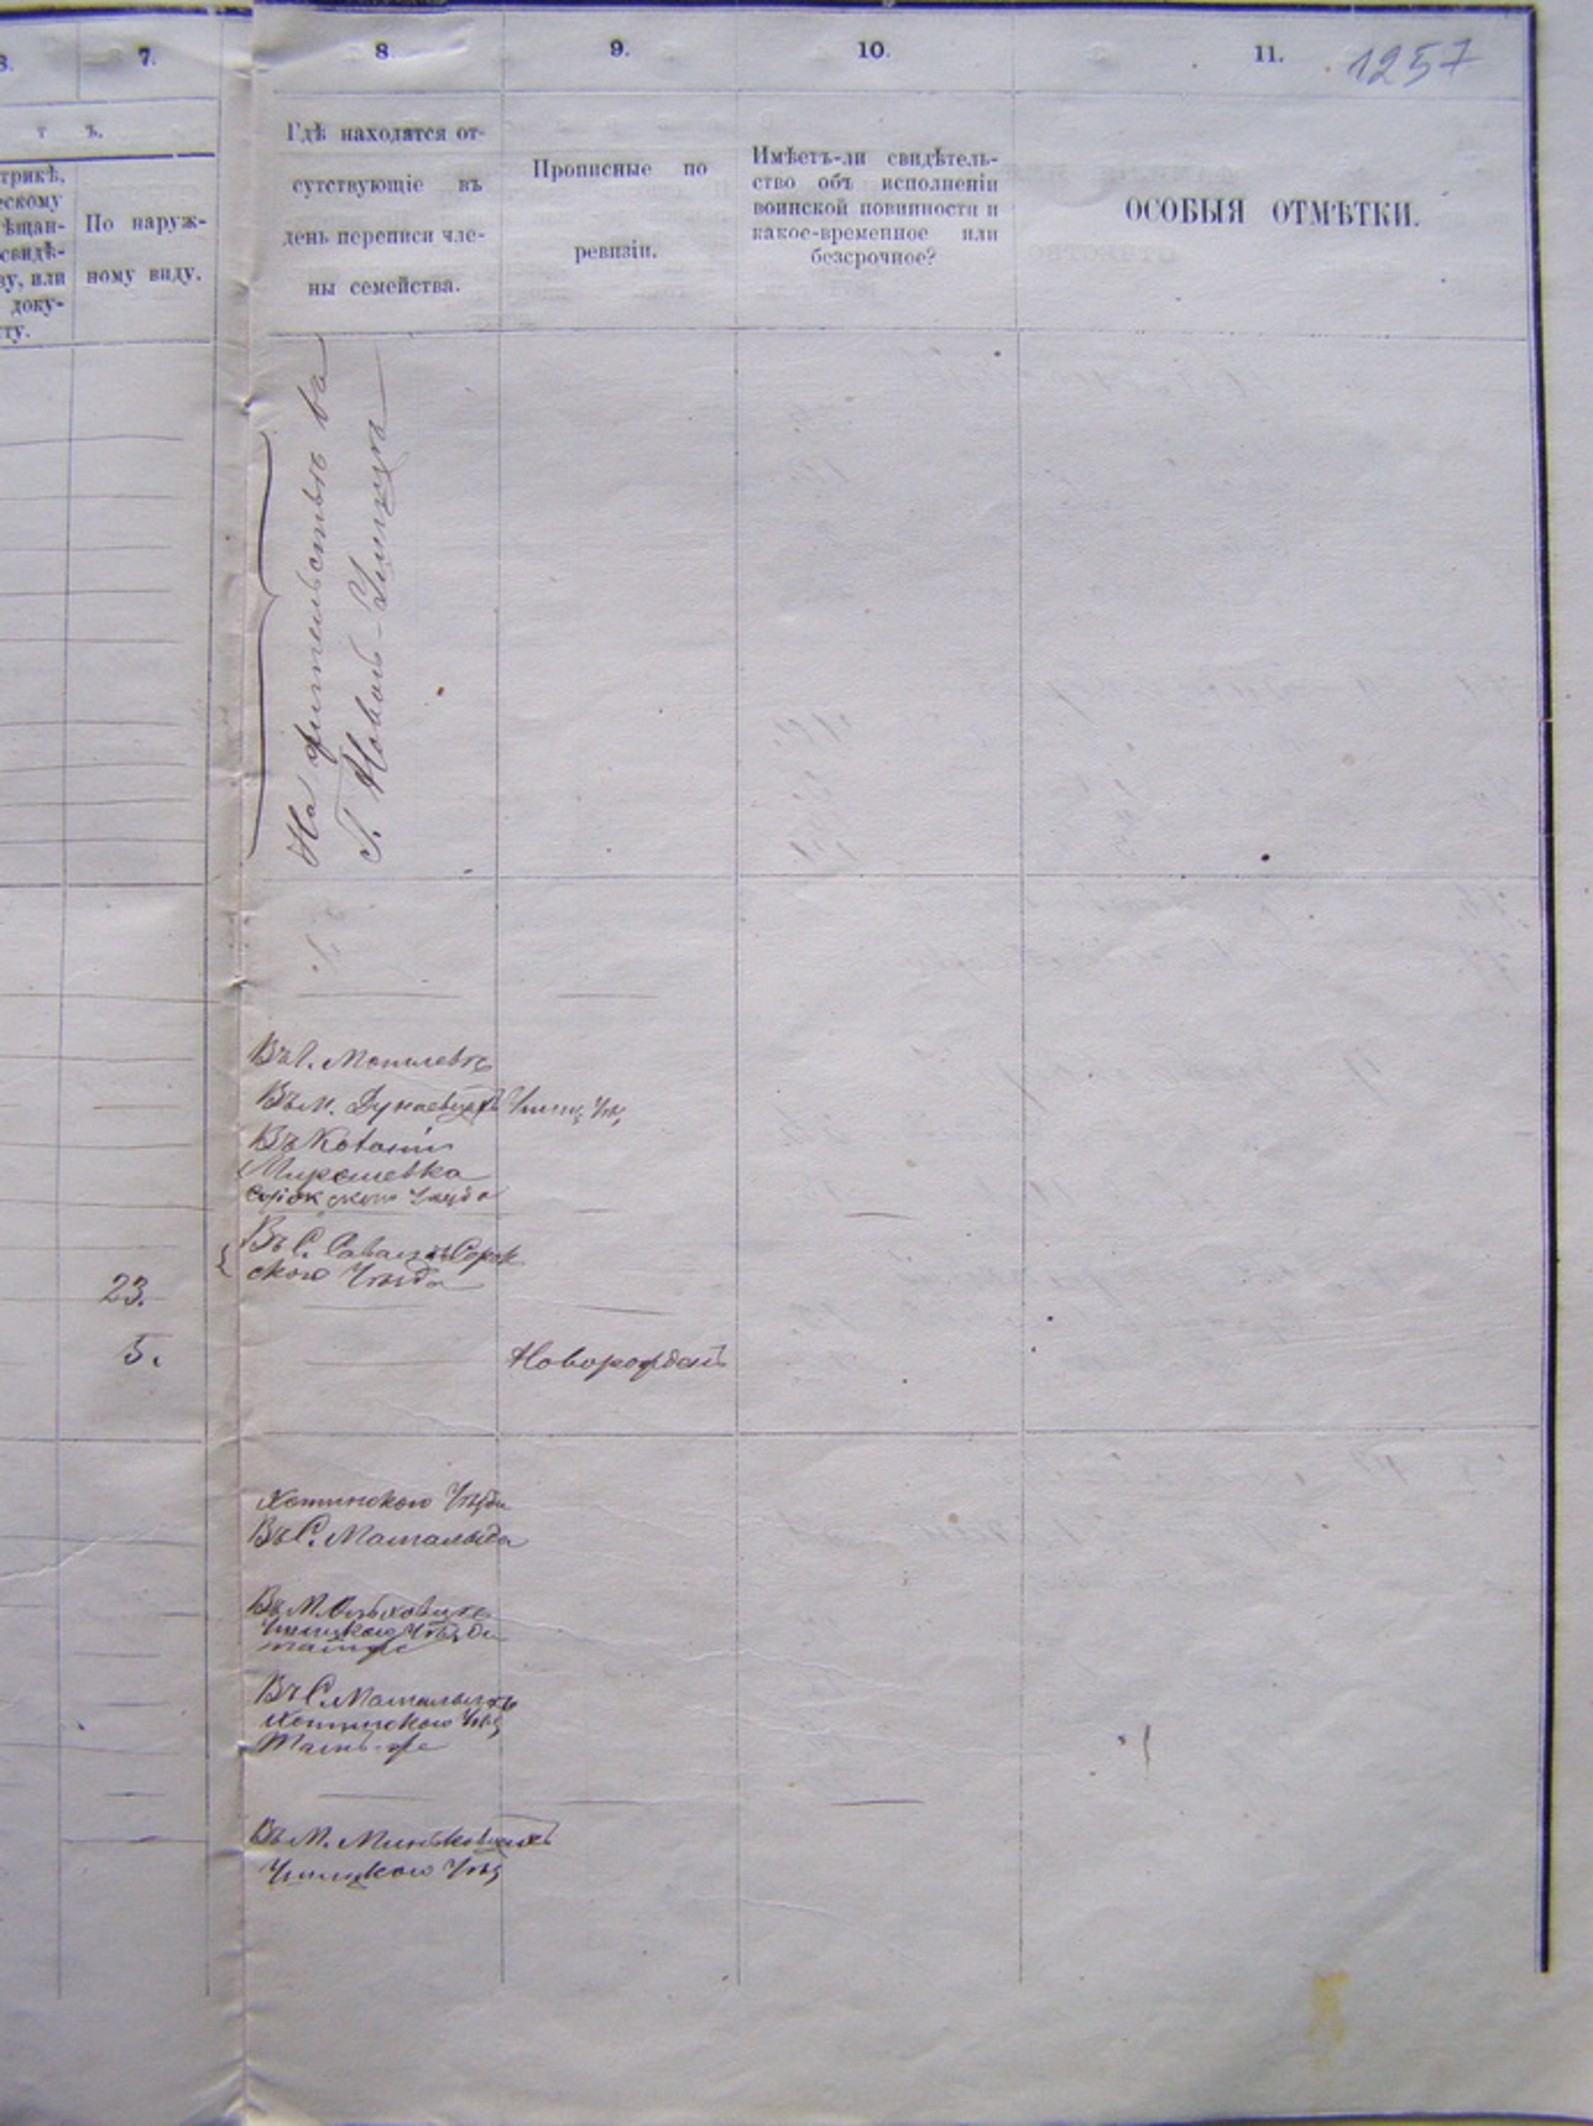 7.
8.
9.
10.
11.
1257
т ъ.
трикѣ,
ескому
ѣщан-
свидѣ-
ву, или
доку-
ту.
По наруж-
ному виду.
Гдѣ находятся от-
сутствующіе въ
день переписи чле-
ны семейства.
Прописные по
ревизіи.
Имѣетъ-ли свидѣтель-
ство объ исполненіи
воинской повинности и
какое-временное или
безсрочное?
ОСОБЫЯ ОТМѢТКИ.
На жительствѣ въ
Г. Новой-Ушицѣ
Въ Г. Могилевѣ
Въ М. Дунаевцахъ Ушиц. Уѣ.
Въ Колоніи
Сорокскаго Уѣзда
Въ С. Сорок
скаго Уѣзда
23.
5.
Новорожден
Хотинскаго Уѣзда
Въ С.
Въ М.
Ушицкаго Уѣзда
тамже
Въ С.
Хотинскаго Уѣз
Тамъ-же
Въ М. Миньковцахъ
Ушицкаго Уѣз